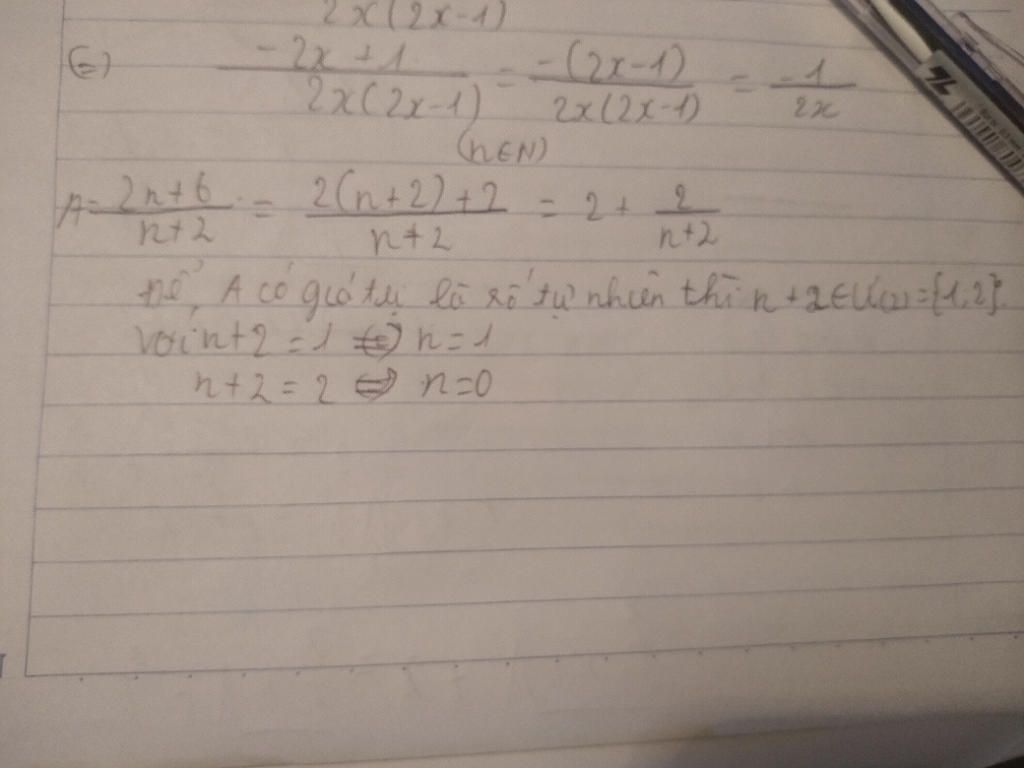 2x(2x-1)
(=) (-2x+1)/(2x(2x-1)) = (-(2x-1))/(2x(2x-1)) = (-1)/(2x)
(n∈N)
A = (2n+6)/(n+2) = (2(n+2)+2)/(n+2) = 2 + 2/(n+2)
để A có giá trị là số tự nhiên thì n+2∈Ư(2)={1,2}
với n+2=1 <=> n=1
n+2=2 <=> n=0